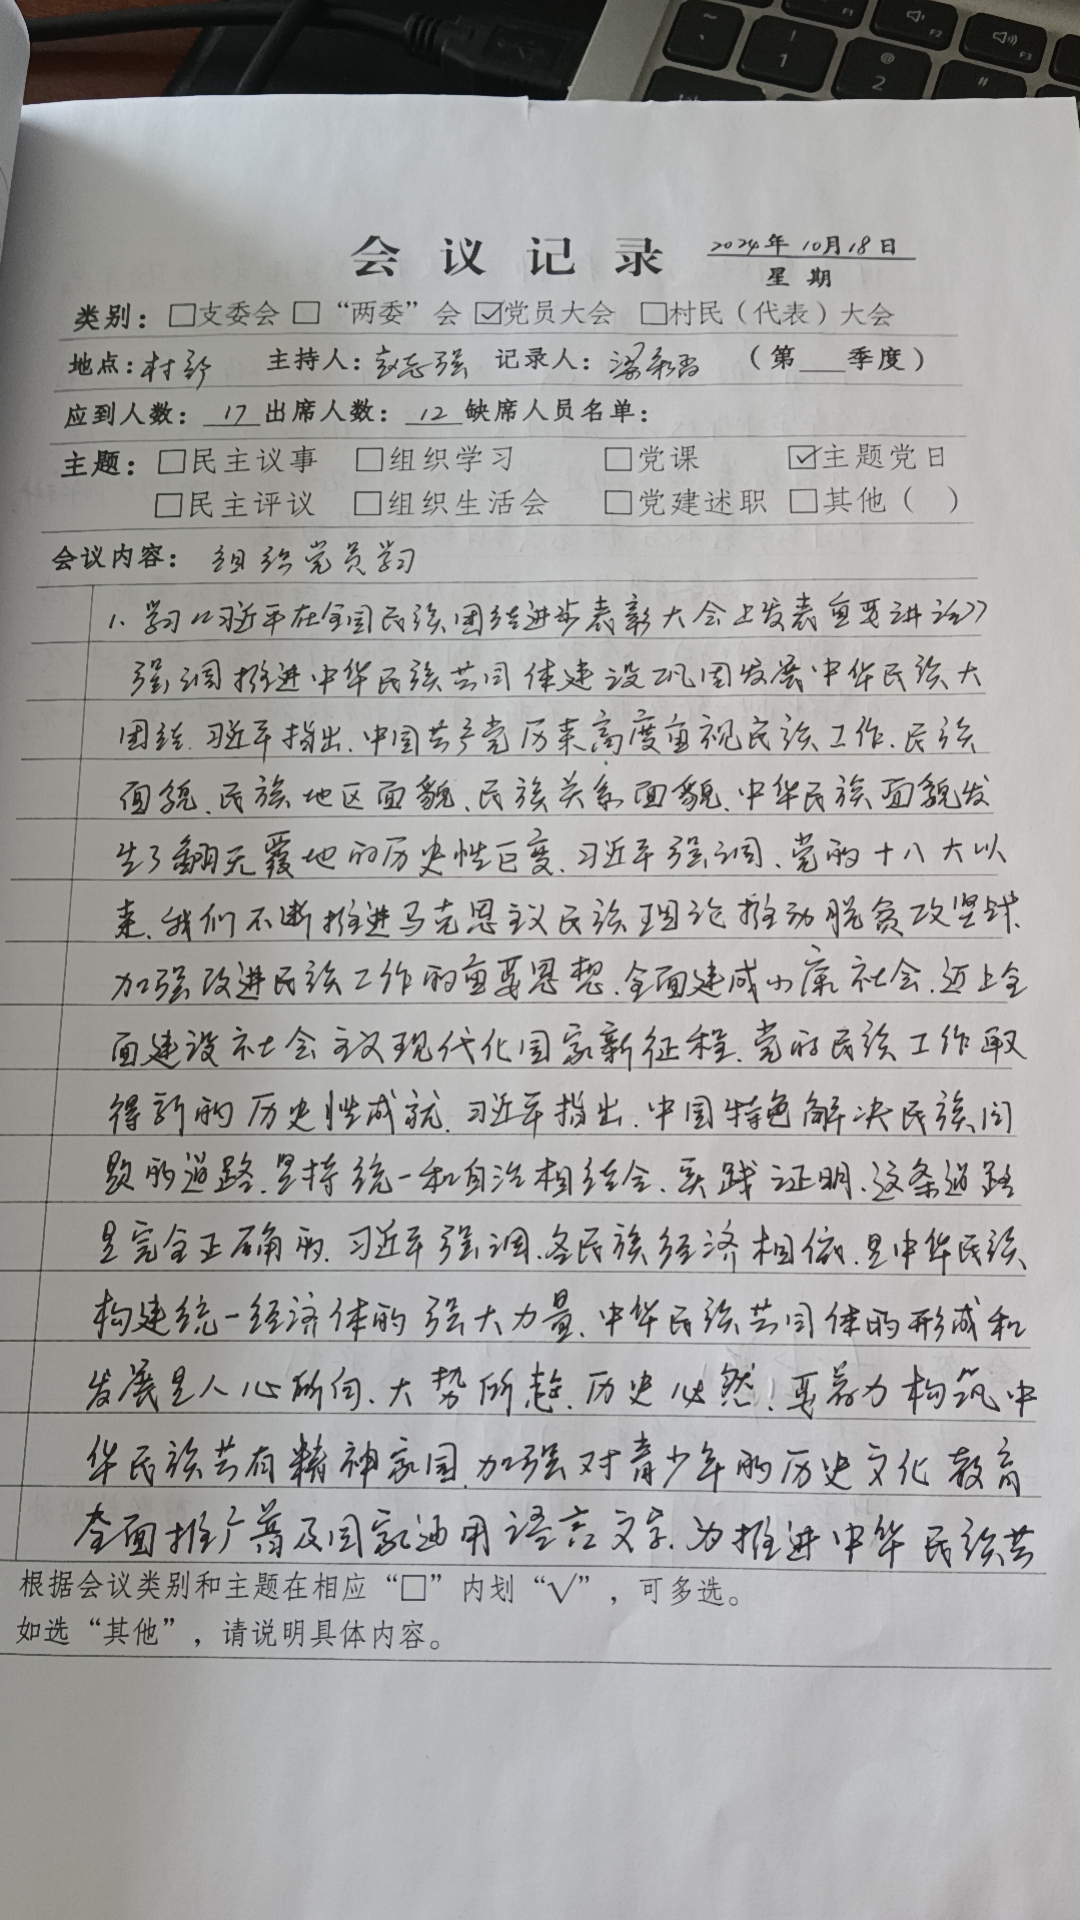 会议记录 2024年10月18日
星期
类别：□支委会 □“两委”会 ☑党员大会 □村民（代表）大会
地点：村部 主持人：赵志强 记录人：梁 （第___季度）
应到人数：17 出席人数：12 缺席人员名单：
主题：□民主议事 □组织学习 □党课 ☑主题党日
□民主评议 □组织生活会 □党建述职 □其他（ ）
会议内容：组织党员学习
1、学习《习近平在全国民族团结进步表彰大会上发表重要讲话》
强调推进中华民族共同体建设巩固发展中华民族大
团结、习近平指出、中国共产党历来高度重视民族工作、民族
面貌、民族地区面貌、民族关系面貌、中华民族面貌发
生了翻天覆地的历史性巨变、习近平强调、党的十八大以
来、我们不断推进马克思主义民族理论推动脱贫攻坚战、
加强改进民族工作的重要思想、全面建成小康社会、迈上全
面建设社会主义现代化国家新征程、党的民族工作取
得新的历史性成就、习近平指出、中国特色解决民族问
题的道路、坚持统一和自治相结合、实践证明、这条道路
是完全正确的、习近平强调、各民族经济相依、是中华民族
构建统一经济体的强大力量、中华民族共同体的形成和
发展是人心所向、大势所趋、历史必然！要着力构筑中
华民族共有精神家园、加强对青少年的历史文化教育
全面推广普及国家通用语言文字、为推进中华民族共
根据会议类别和主题在相应“□”内划“√”，可多选。
如选“其他”，请说明具体内容。
~
、
!
1
@
2
#
F2
F3